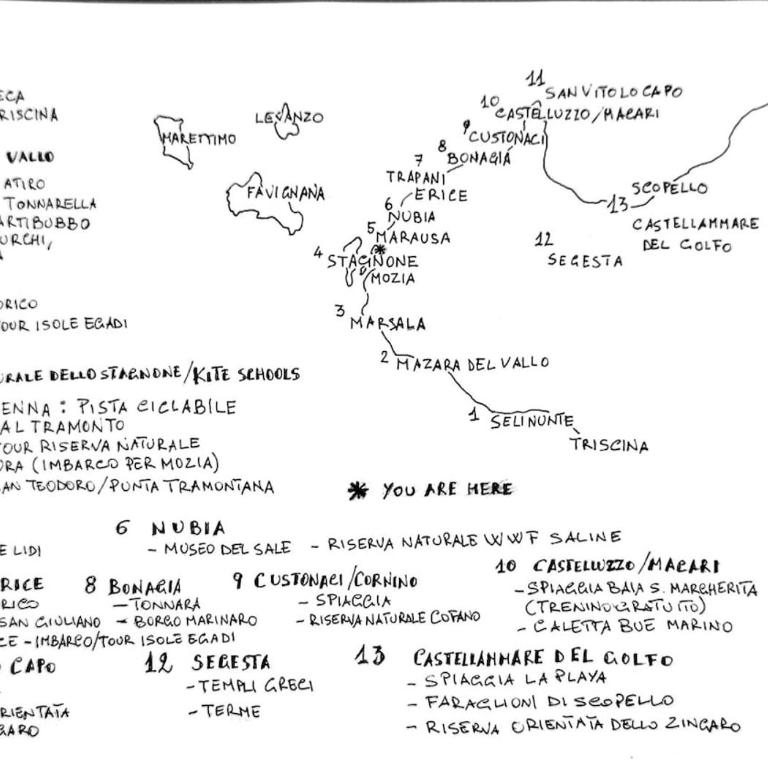 11
SAN VITO LO CAPO
10
CASTELLUZZO/MACARI
9
CUSTONACI
8
BONAGIA
7
TRAPANI
ERICE
6
NUBIA
5
MARAUSA
4
STAGNONE
MOZIA
3
MARSALA
2 MAZARA DEL VALLO
1 SELINUNTE
TRISCINA
LEVANZO
MARETTIMO
FAVIGNANA
SCOPELLO
13
CASTELLAMMARE
DEL GOLFO
12
SEGESTA
* YOU ARE HERE
ECA
RISCINA
VALLO
ATIRO
TONNARELLA
ARTIBUBBO
URCHI,
A
ORICO
OUR ISOLE EGADI
URALE DELLO STAGNONE/KITE SCHOOLS
ENNA : PISTA CICLABILE
AL TRAMONTO
OUR RISERVA NATURALE
ORA (IMBARCO PER MOZIA)
AN TEODORO/PUNTA TRAMONTANA
6 NUBIA
- MUSEO DEL SALE - RISERVA NATURALE WWF SALINE
E LIDI
RICE
RICO
SAN GIULIANO
CE - IMBARCO/TOUR ISOLE EGADI
8 BONAGIA
- TONNARA
- BORGO MARINARO
9 CUSTONACI/CORNINO
- SPIAGGIA
- RISERVA NATURALE COFANO
10 CASTELLUZZO/MACARI
- SPIAGGIA BAIA S. MARGHERITA
(TRENINO GRATUITO)
- CALETTA BUE MARINO
O CAPO
RIENTATA
GARO
12 SEGESTA
- TEMPLI GRECI
- TERME
13 CASTELLAMMARE DEL GOLFO
- SPIAGGIA LA PLAYA
- FARAGLIONI DI SCOPELLO
- RISERVA ORIENTATA DELLO ZINGARO